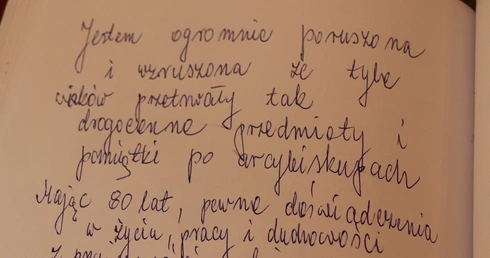 Jestem ogromnie poruszona
i wzruszona że tyle
wieków przetrwały tak
drogocenne przedmioty i
pamiątki po arcybiskupach
Mając 80 lat, pewne doświadczenia
w życiu, pracy i duchowości